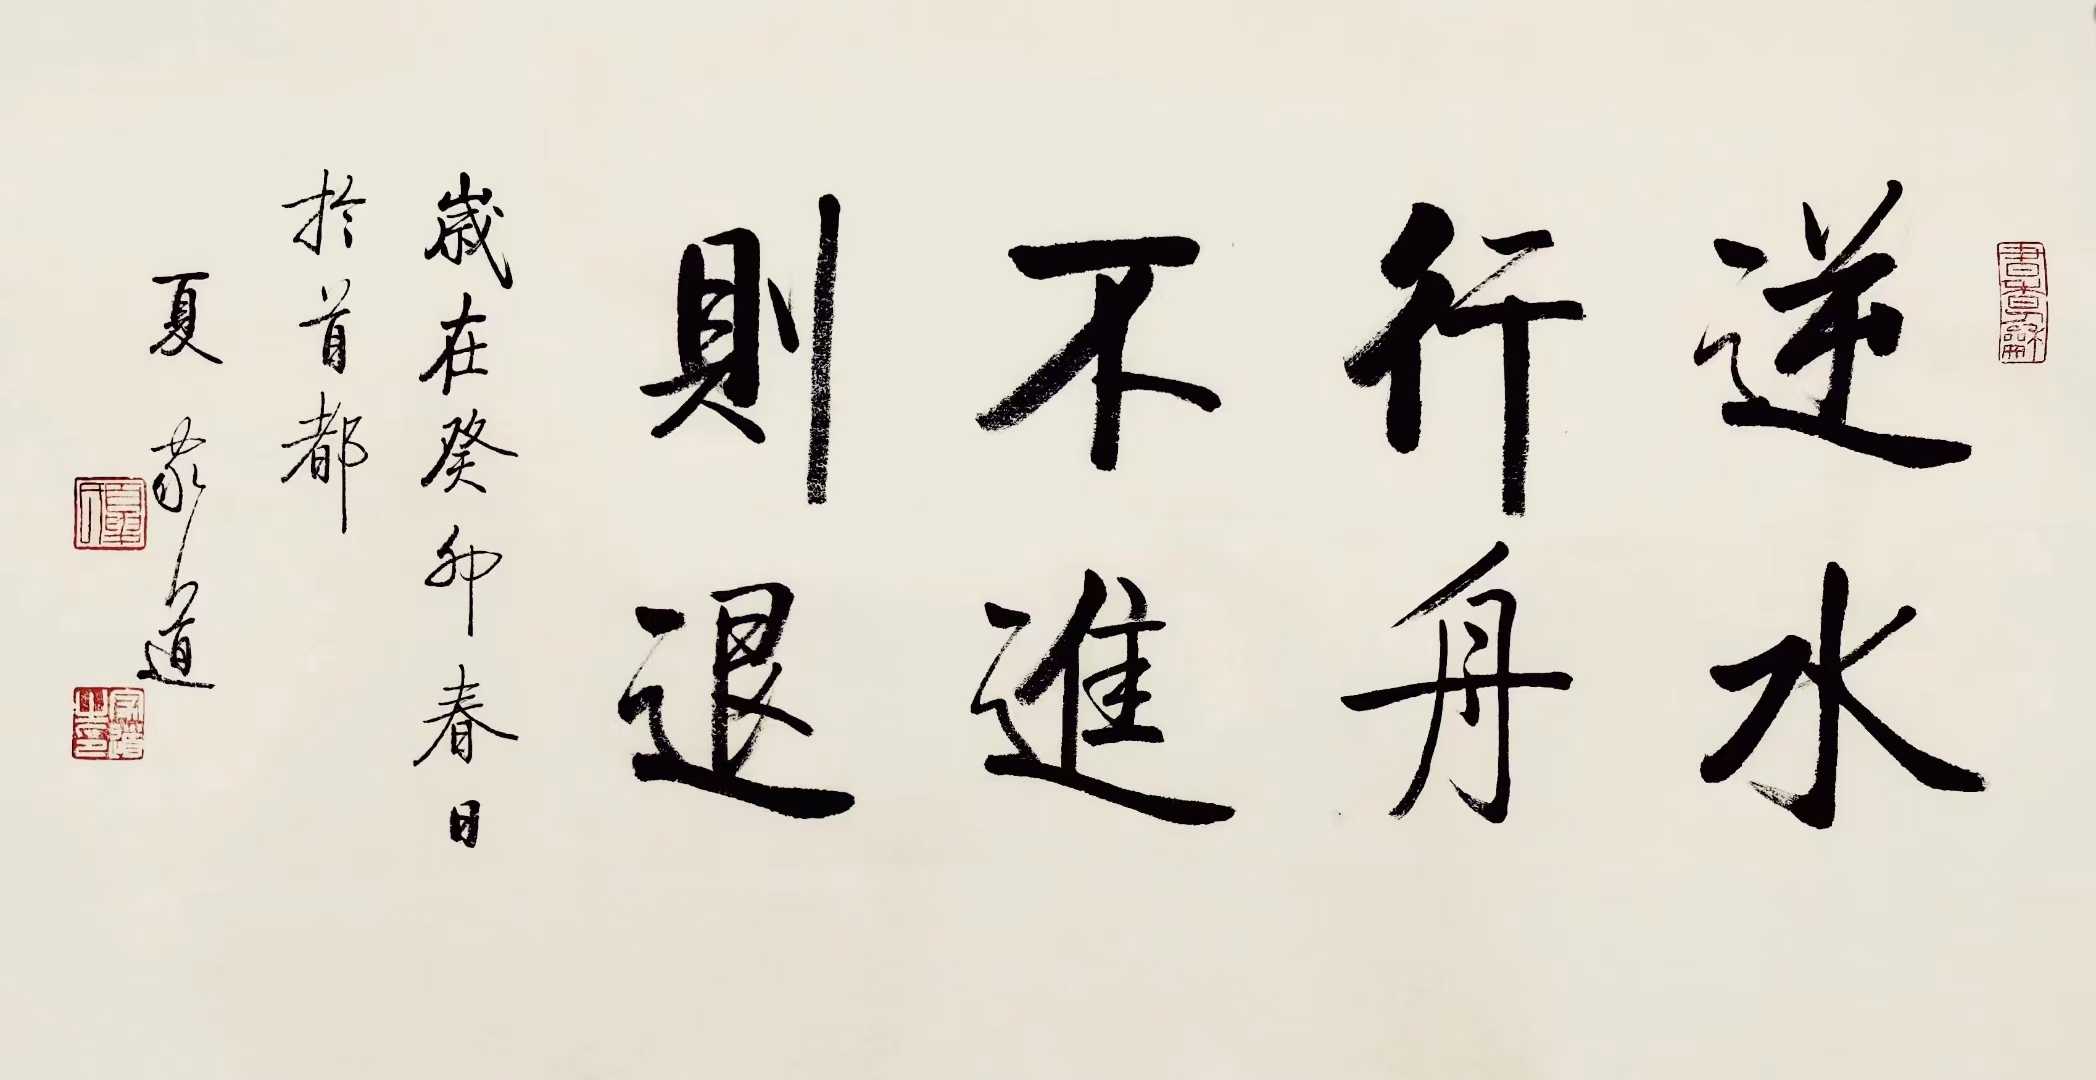 逆水
行舟
不進
則退
歲在癸卯春日
於首都
夏家道